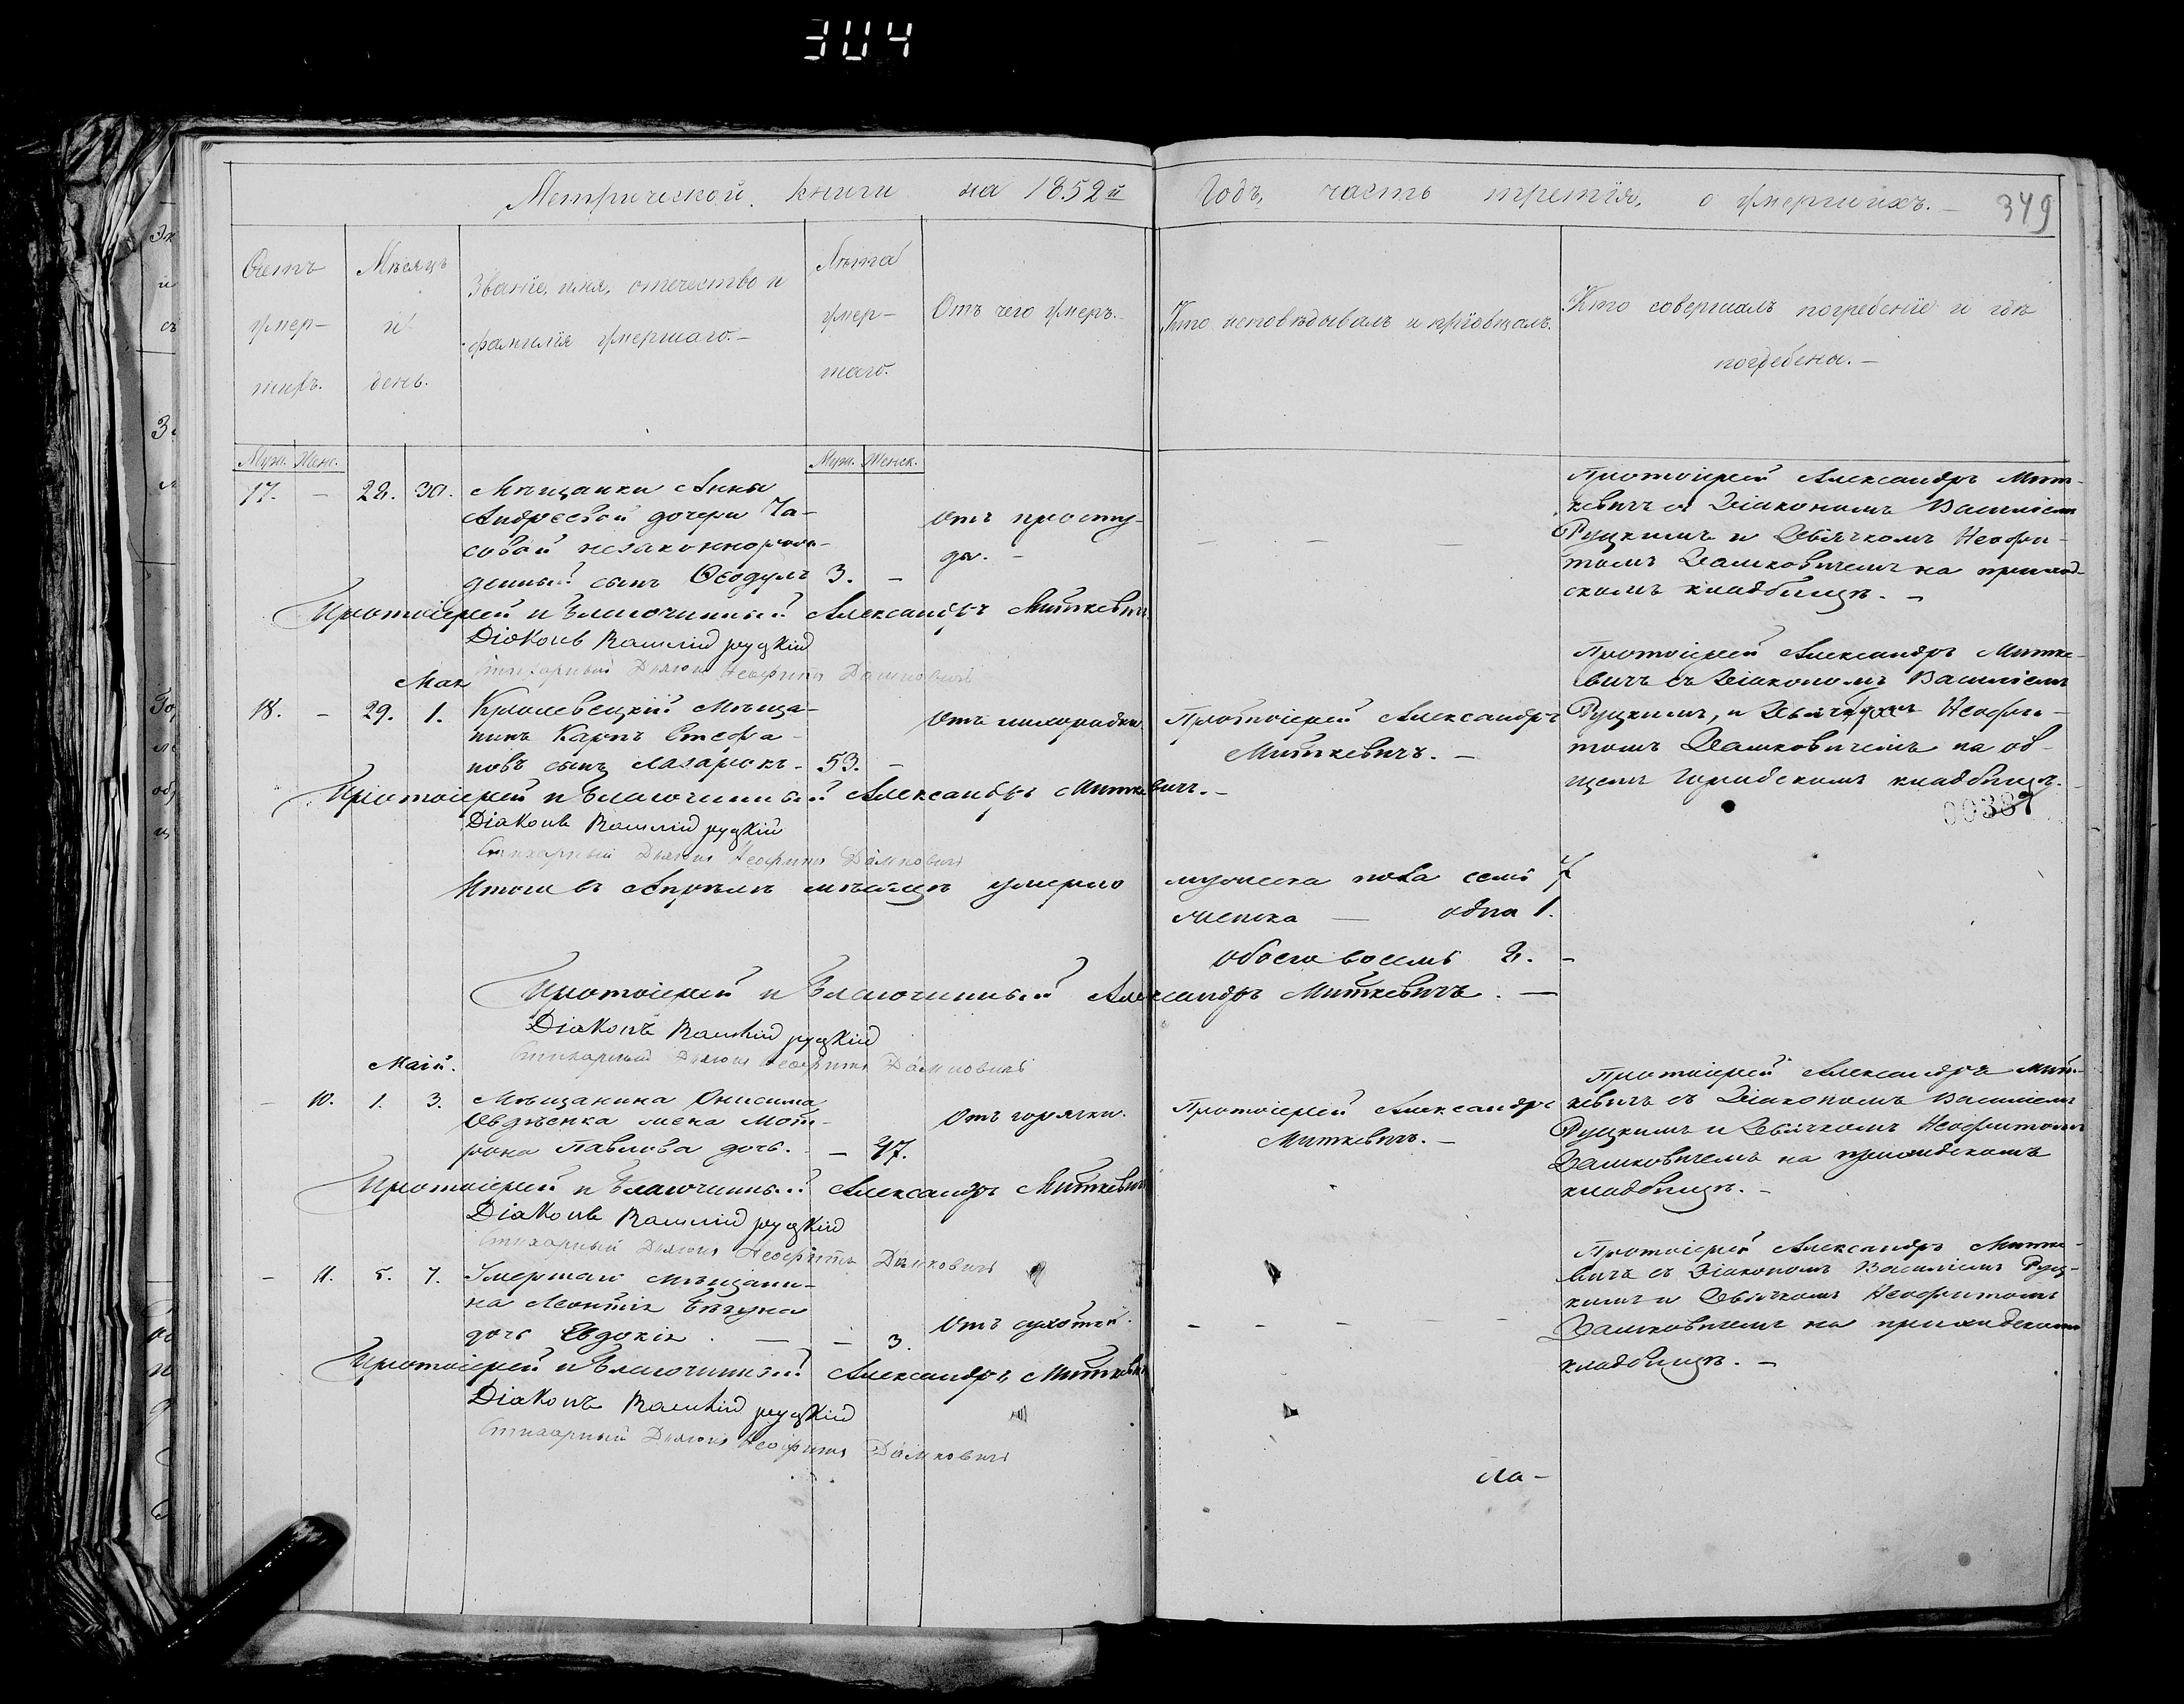 304
Метрической книги на 1852й Годъ, часть третія, о умершихъ. — 349
Счетъ умер-шихъ.
Мѣсяцъ и день.
Званіе, имя, отечество и
фамилія умершаго. —
Лѣта умер-шаго.
Отъ чего умеръ. —
Кто исповѣдывалъ и пріобщалъ.
Кто совершалъ погребеніе и гдѣ
погребены. —
Муж. Жен.
Муж. Женск.
17. — 28. 30. Мѣщанки Анны
Андреевой дочери Ча-
совой незаконнорож-
денный сынъ Ѳеодулъ 3. —
Отъ просту-
ды. —
— — —
Протоіерей Александръ Мит-
кевичъ съ Діакономъ Василіемъ
Руцкимъ и Дьячкомъ Неофи-
томъ Дашковичемъ на приход-
скомъ кладбищѣ. —
Протоіерей и Благочинный Александръ Миткевичъ
Діаконъ Василій руцкій
Стихарный Дьячокъ Неофитъ Дашковичъ
Мая
18. — 29. 1. Кролевецкій Мѣща-
нинъ Карпъ Стефа-
новъ сынъ Лазарюкъ - 53. —
Отъ лихорадки.
Протоіерей Александръ
Миткевичъ. —
Протоіерей Александръ Митке-
вичъ съ Діакономъ Василіемъ
Руцкимъ, и Дьячкомъ Неофи-
томъ Дашковичемъ на об-
щемъ Городскомъ кладбищѣ. —
Протоіерей и Благочинный Александръ Миткевичъ. —
00387
Діаконъ Василій руцкій
Стихарный Дьячокъ Неофитъ Дашковичъ
Итого въ Апрѣлѣ мѣсяцѣ умерло мужеска пола семь 7
женска — одна 1.
обоего восемь 8. —
Протоіерей и Благочинный Александръ Миткевичъ. —
Діаконъ Василій руцкій
Стихарный Дьячокъ Неофитъ Дашковичъ
Маій.
— 10. 1. 3. Мѣщанина Онисима
Овдѣенка жена Мот-
рона Павлова дочь. — 47.
Отъ горячки.
Протоіерей Александръ
Миткевичъ. —
Протоіерей Александръ Мит-
кевичъ съ Діакономъ Василіемъ
Руцкимъ и Дьячкомъ Неофитомъ
Дашковичемъ на приходскомъ
кладбищѣ. —
Протоіерей и Благочинный Александръ Миткевичъ
Діаконъ Василій руцкій
Стихарный Дьячокъ Неофитъ Дашковичъ
— 11. 5. 7. Умершаго мѣщани-
на Леонтія
дочь Евдокія. — — 3.
Отъ сухотки.
— — — — —
Протоіерей Александръ Митке-
вичъ съ Діакономъ Василіемъ Руц-
кимъ и Дьячкомъ Неофитомъ
Дашковичемъ на приходскомъ
кладбищѣ. —
Протоіерей и Благочинный Александръ Миткевичъ
Діаконъ Василій руцкій
Стихарный Дьячокъ Неофитъ Дашковичъ
Ла-